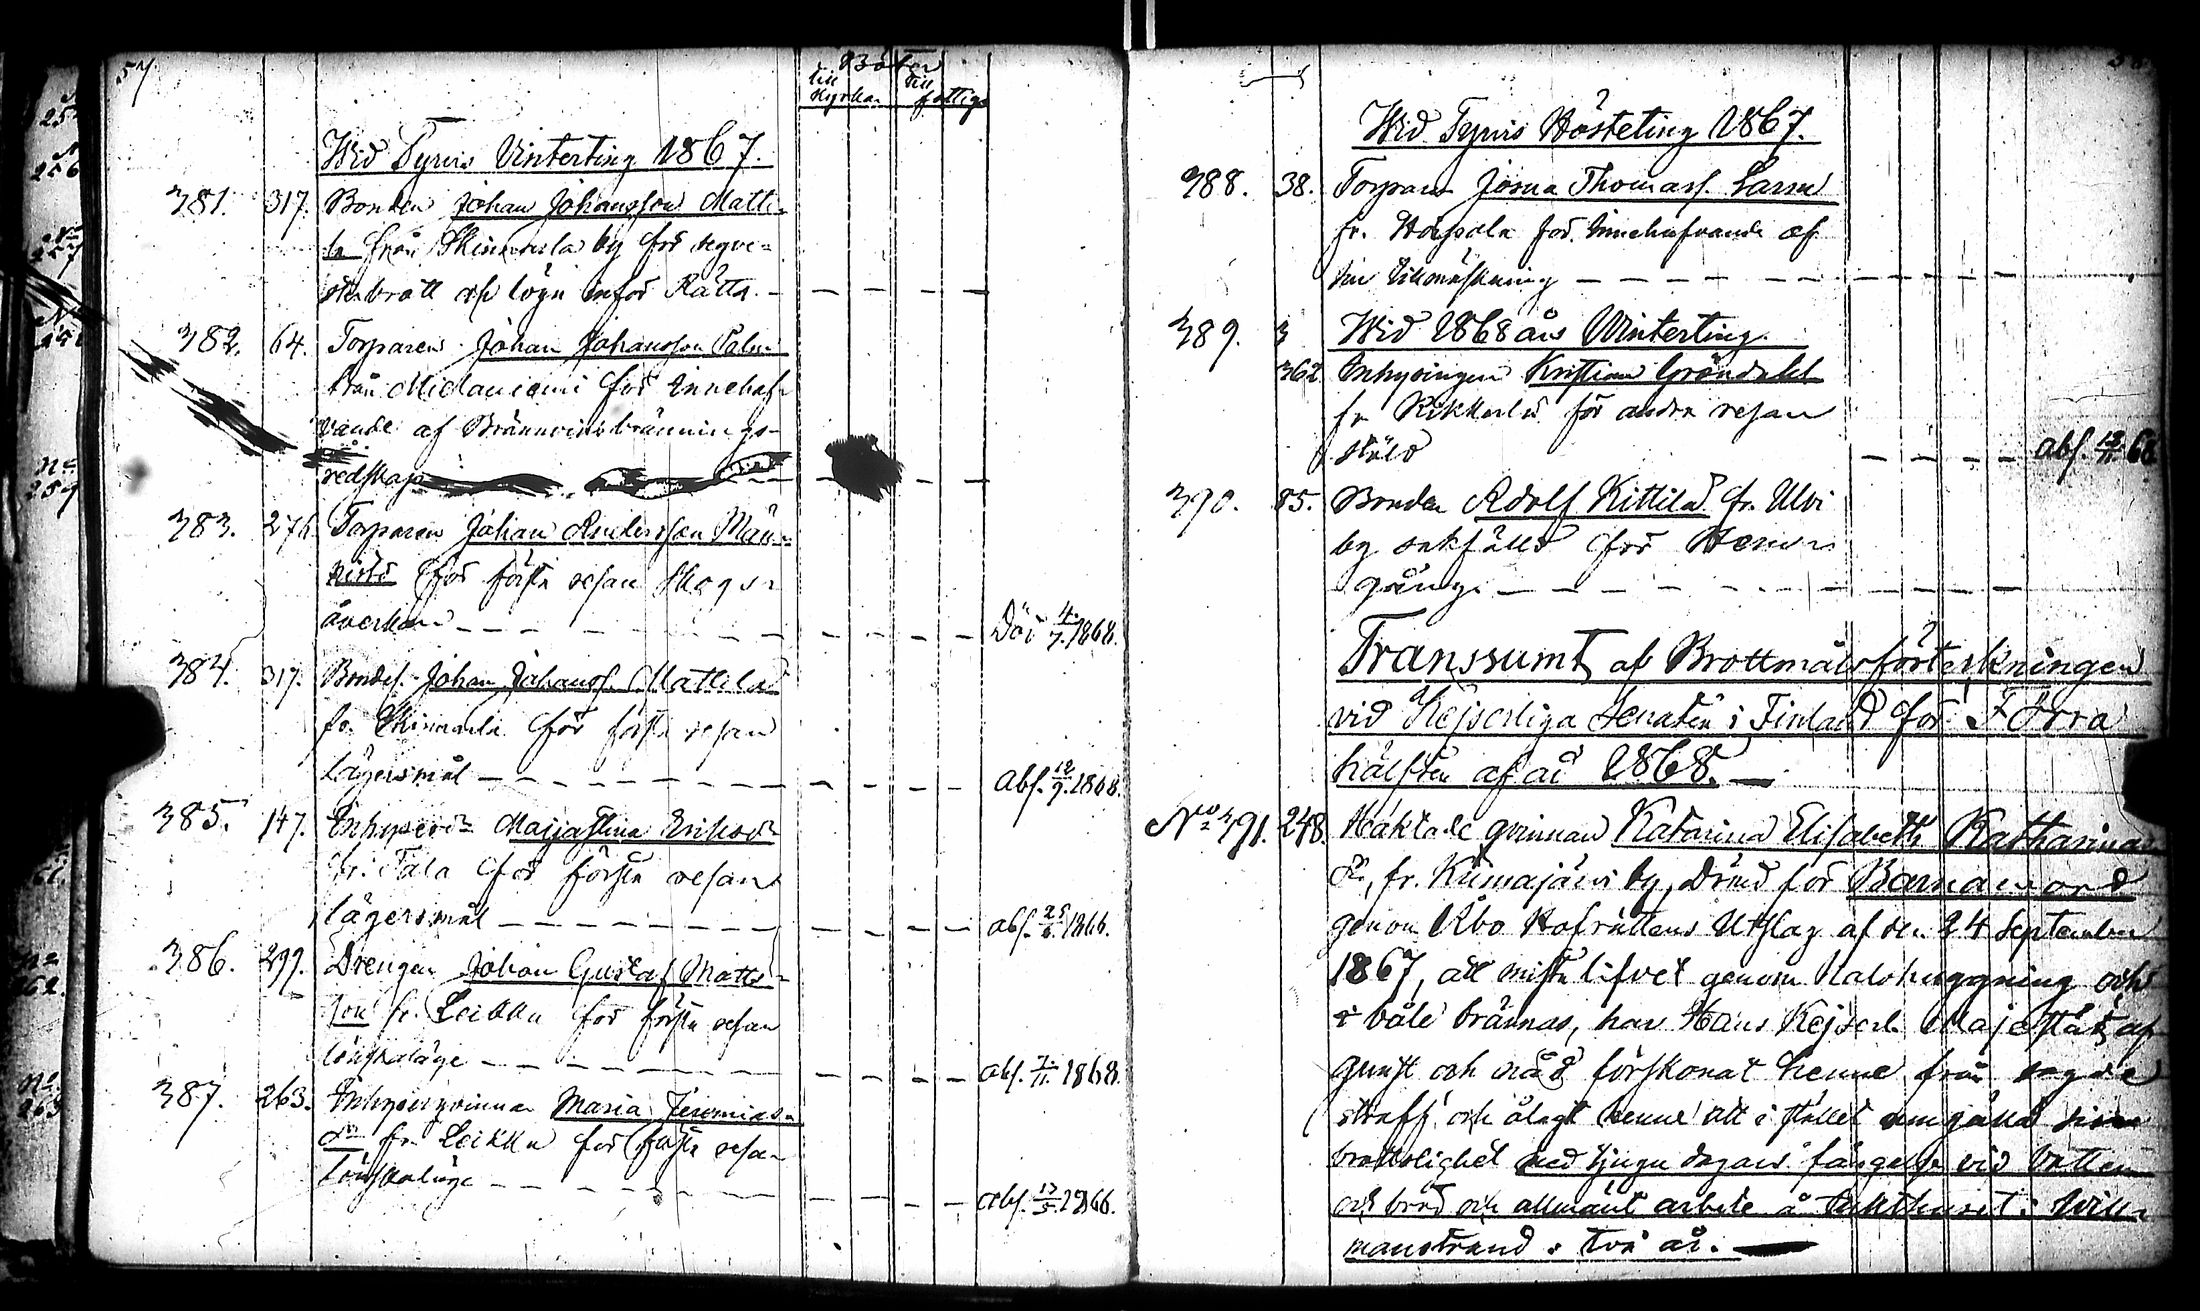 57
Böter
till Kyrkan
till fattiga
Wid Tyrvis Vinterting 1867.
381. 317. Bonden Johan Johansson Matti-
la från Skinnarla by för segve-
brott och lögn inför Rätta.
382. 64. Torparen Johan Johansson
från för Innehaf-
vande af Brännvinsbrännings-
redskap
383. 276. Torparen Johan Andersson
för första resan Skogs-
åverkan Död 4/7 1868.
384. 317. Bondes. Johan Johanss. Mattila
fr. Skinnarla för första resan
Lägersmål abs. 12/9 1868.
385. 147. Majjastina Eriksdr
fr. Tala för första resan
lägersmål abs. 25/6 1866.
386. 299. Drengen Johan Gustaf Matts-
son fr. Leikku för första resan
lönskaläge abs. 7/11 1868.
387. 263. Inhysesqvinnan Maria Jeremias-
dr fr. Leikku för första resan
lönskaläge abs. 13/5 1866.
Wid Tyrvis Hösteting 1867.
388. 38. Torparen Josua Thomass.
fr. för Innehafvande af
389. 3 Wid 1868 års Winterting.
362 Inhysingen Kristian Gröndahl
fr. Kikkerlä för andra resan
stöld abs. 12/11 68
390. 85. Bonden Adolf Kittilä fr. Ulvi
by sakfälld för Hemn-
gång.
Transsumt af Brottmålsförteckningen
vid Kejserliga Senaten i Finland för Förra
hälften af år 1868.
No 391. 248. Häktade qvinnan Katarina Elisabeth Katharinae
dr, fr. Kiimajärvi by, dömd för Barnamord
genom Åbo Hofrättens Utslag af den 24 September
1867, att mista lifvet genom Halshuggning och
i båle brännas, har Hans Kejserl. Majestät, af
gunst och nåd förskonat henne från sagde
straff och ålagt henne att i stället umgälla sin
brottslighet med tjugu dagars fängelse vid Vatten
och bröd och allmänt arbete å tukthuset i Will-
manstrand i två år.